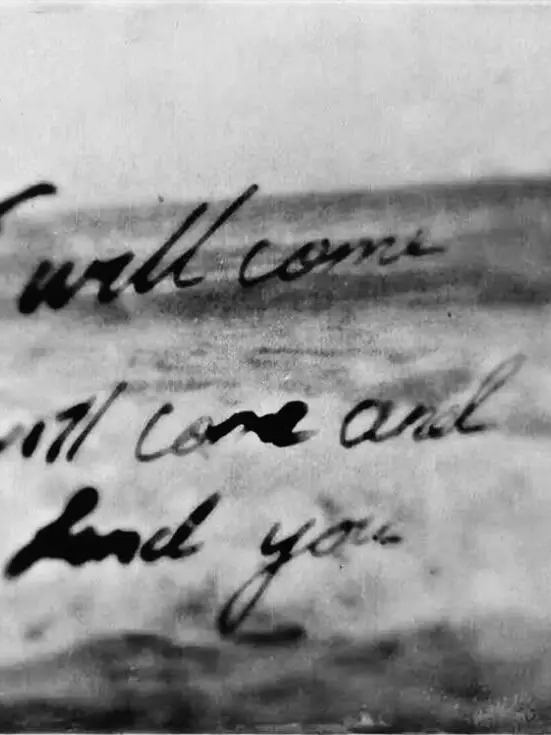 will come
will come and
find you